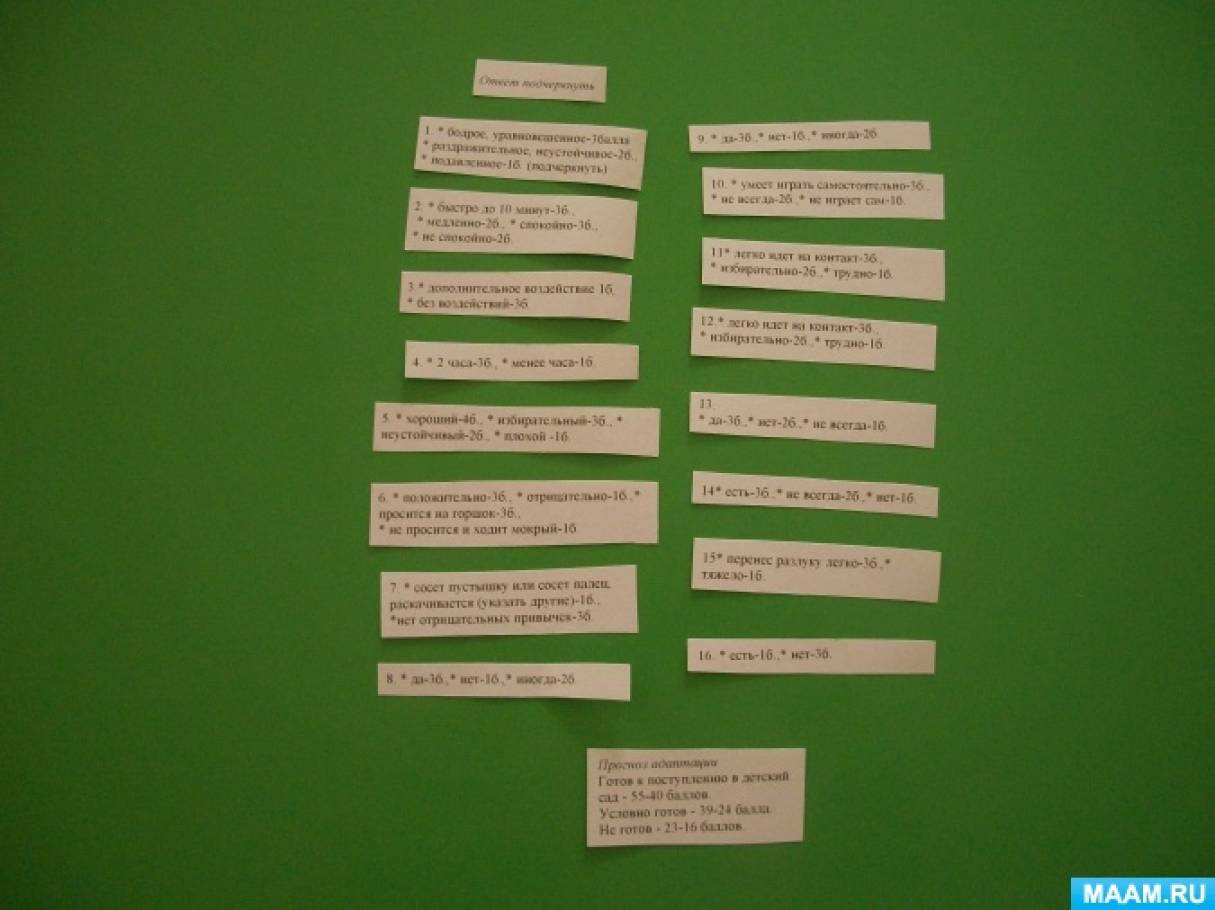 Ответ подчеркнуть
1. * бодрое, уравновешенное-3балла
* раздражительное, неустойчивое-2б.,
* подавленное-1б. (подчеркнуть)
2. * быстро до 10 минут-3б.,
* медленно-2б., * спокойно-3б.,
* не спокойно-2б.
3.* дополнительное воздействие 1б,
* без воздействий-3б.
4. * 2 часа-3б., * менее часа-1б.
5. * хороший-4б., * избирательный-3б., *
неустойчивый-2б., * плохой -1б.
6. * положительно-3б., * отрицательно-1б.,*
просится на горшок-3б.,
* не просится и ходит мокрый-1б.
7. * сосет пустышку или сосет палец,
раскачивается (указать другие)-1б.,
*нет отрицательных привычек-3б.
8. * да-3б.,* нет-1б.,* иногда-2б.
9. * да-3б.,* нет-1б.,* иногда-2б.
10. * умеет играть самостоятельно-3б.,
* не всегда-2б.,* не играет сам-1б.
11* легко идет на контакт-3б.,
* избирательно-2б.,* трудно-1б.
12.* легко идет на контакт-3б.,
* избирательно-2б.,* трудно-1б.
13.
* да-3б.,* нет-2б.,* не всегда-1б.
14* есть-3б.,* не всегда-2б.,* нет-1б.
15* перенес разлуку легко-3б.,*
тяжело-1б.
16. * есть-1б.,* нет-3б.
Прогноз адаптации
Готов к поступлению в детский
сад - 55-40 баллов.
Условно готов - 39-24 балла.
Не готов - 23-16 баллов.
MAAM.RU